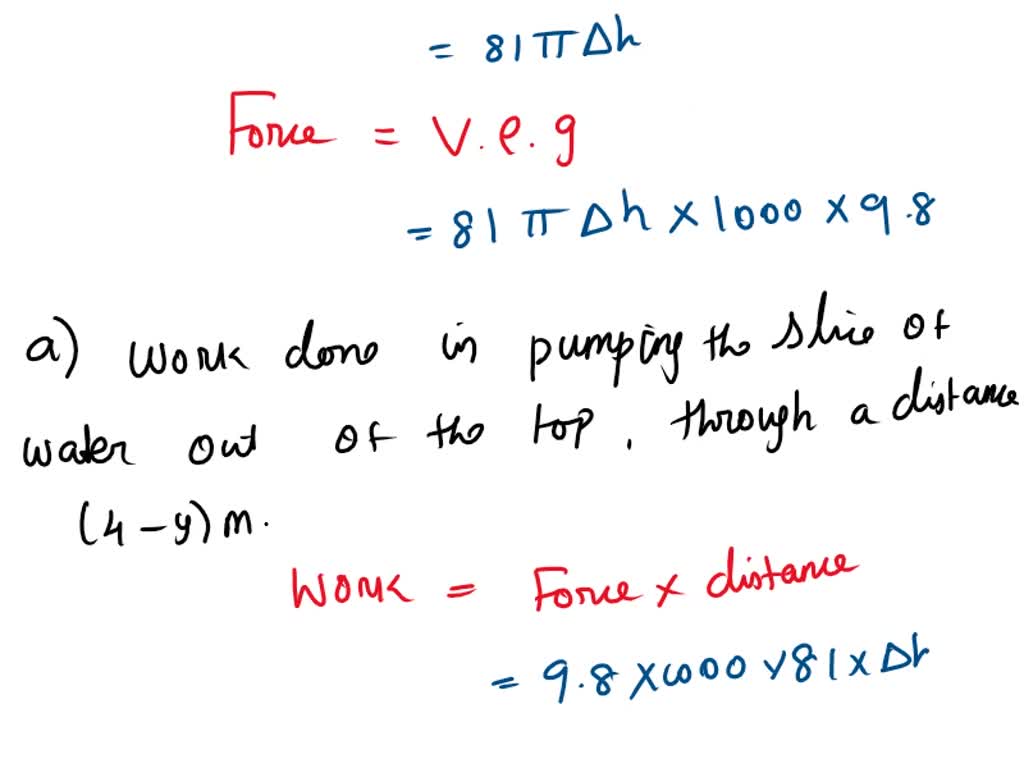 = 81πΔh
Force = V.ρ.g
= 81πΔh × 1000 × 9.8
a) Work done in pumping the slice of
water out of the top, through a distance
(4-y)m.
Work = Force × distance
= 9.8 × 1000 × 81 × Δh